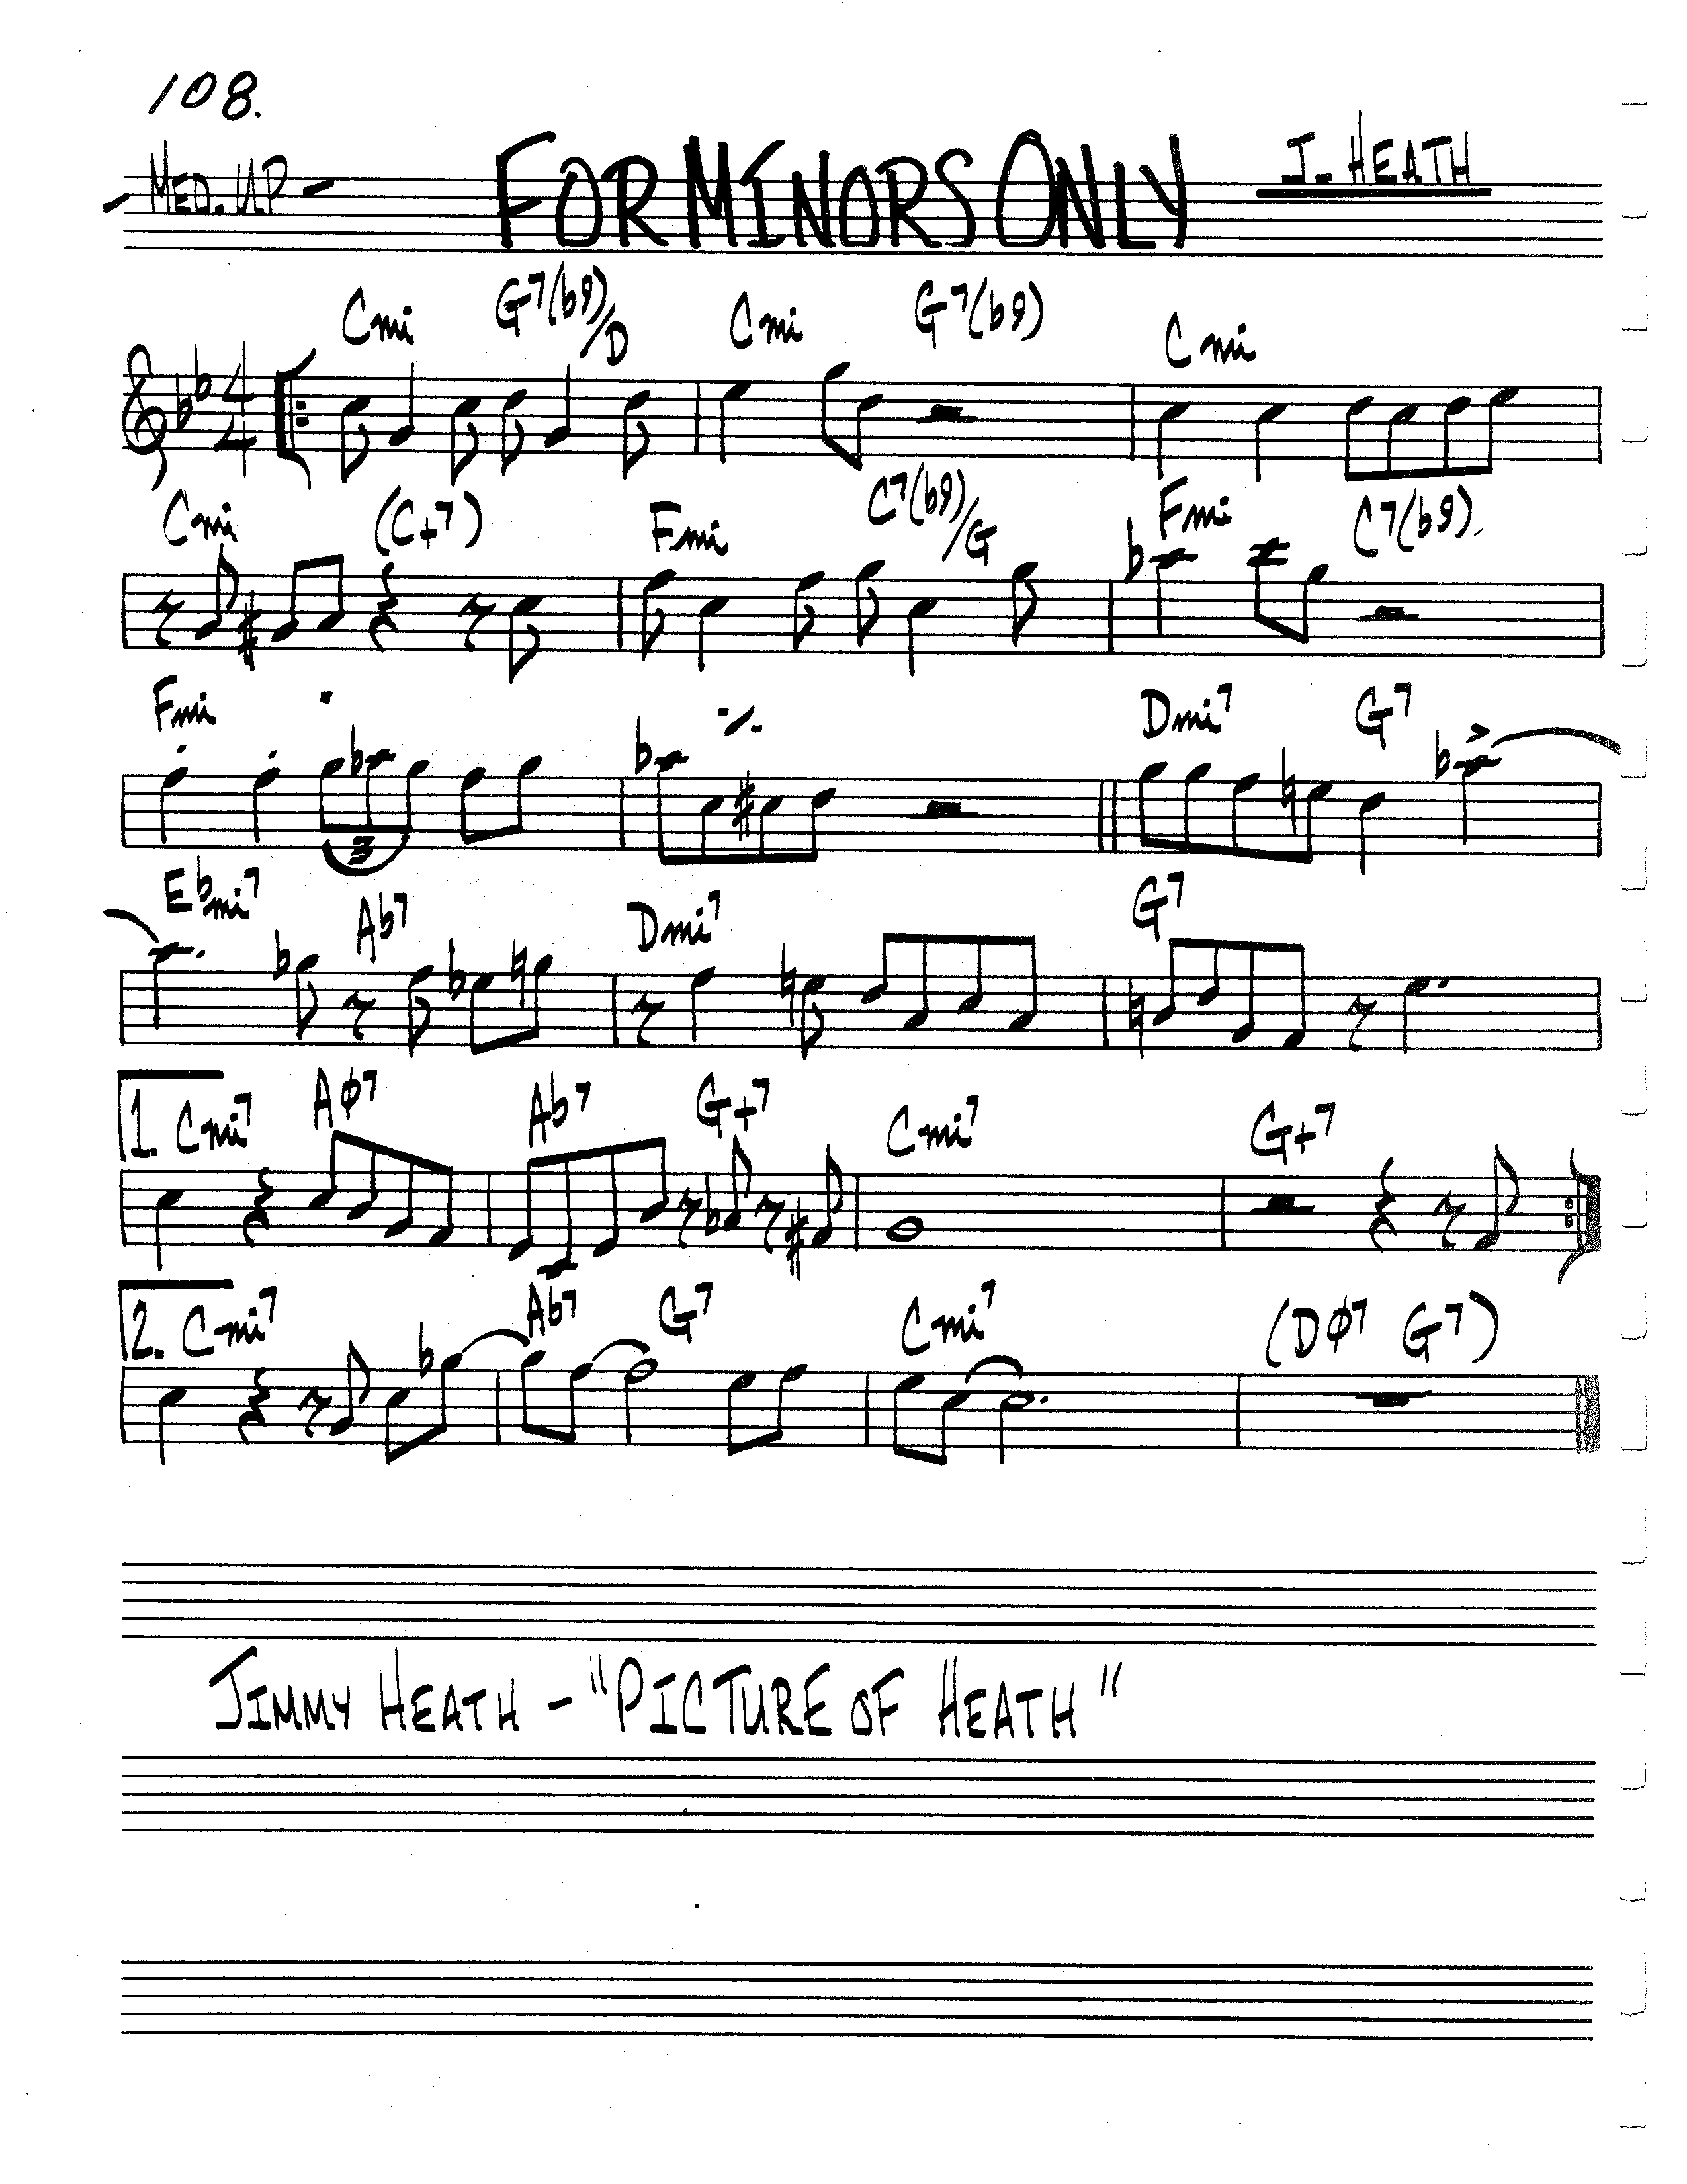 108.
- MED. UP -
FOR MINORS ONLY
J. HEATH
Cmi G7(b9)/D Cmi G7(b9) Cmi
4
4
Cmi (C+7) Fmi C7(b9)/G Fmi C7(b9)
Fmi ٪ Dmi7 G7
3
Ebmi7 Ab7 Dmi7 G7
1. Cmi7 Aø7 Ab7 G+7 Cmi7 G+7
2. Cmi7 Ab7 G7 Cmi7 (Dø7 G7)
JIMMY HEATH - "PICTURE OF HEATH"